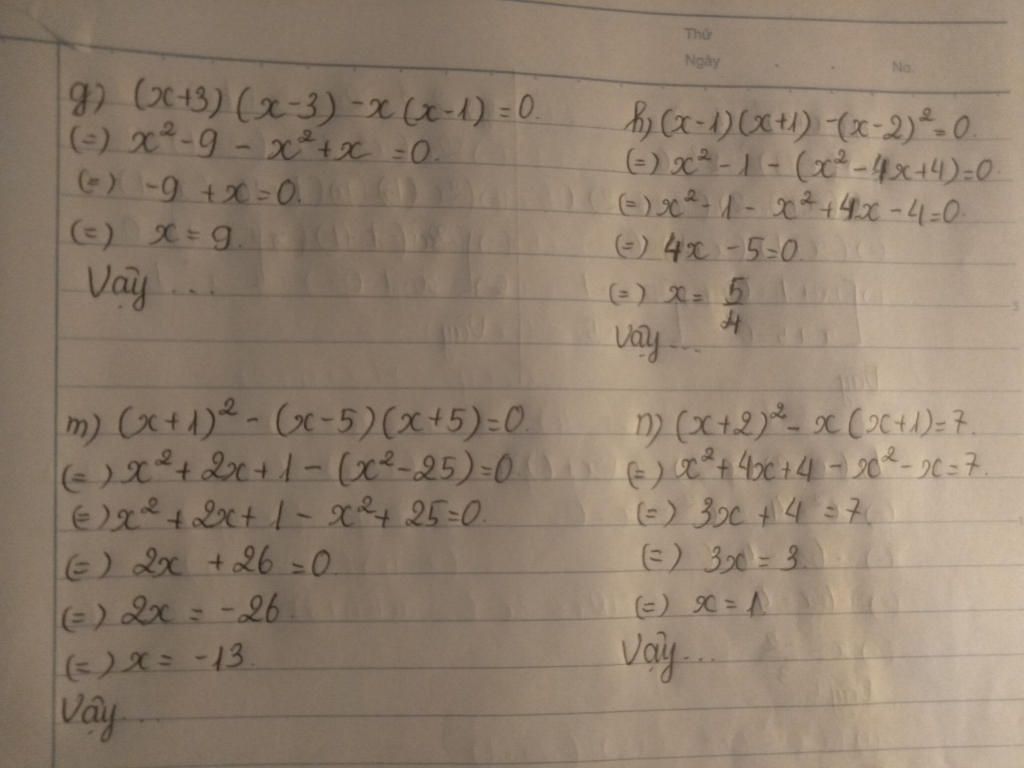 Thứ
Ngày
No.
g) (x+3)(x-3) -x(x-1)=0.
(=) x²-9 - x²+x =0.
(=) -9 +x=0.
(=) x=9.
Vậy ...
h) (x-1)(x+1) -(x-2)²=0.
(=) x²-1 - (x²-4x+4)=0
(=) x²-1- x²+4x-4=0.
(=) 4x -5=0.
(=) x= 5/4
Vậy ...
m) (x+1)² - (x-5)(x+5)=0.
(=) x²+2x+1-(x²-25)=0
(=) x²+2x+1-x²+25=0.
(=) 2x +26 =0.
(=) 2x = -26.
(=) x= -13.
Vậy ...
n) (x+2)²- x(x+1)=7.
(=) x²+4x+4-x²-x=7.
(=) 3x + 4 =7.
(=) 3x = 3.
(=) x=1
Vậy ...